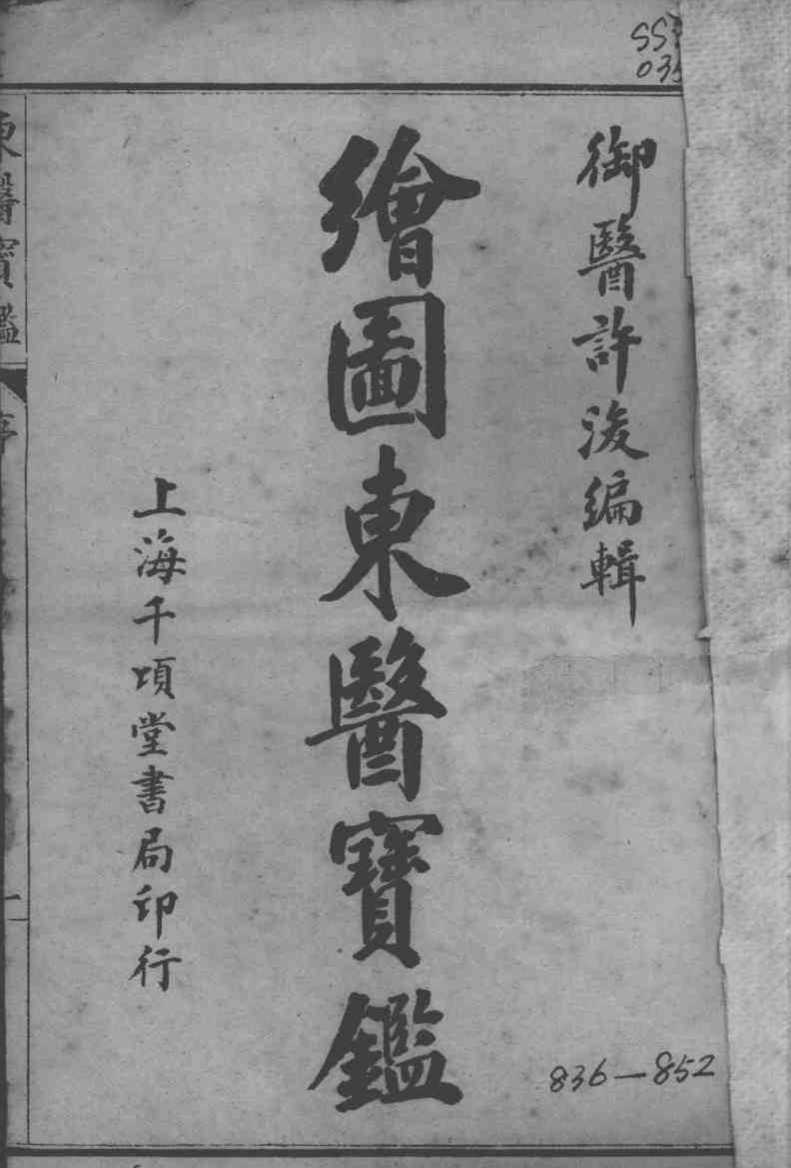 御醫許浚編輯
繪圖東醫寶鑑
上海千頃堂書局印行
東醫寶鑑
序
一
836—852